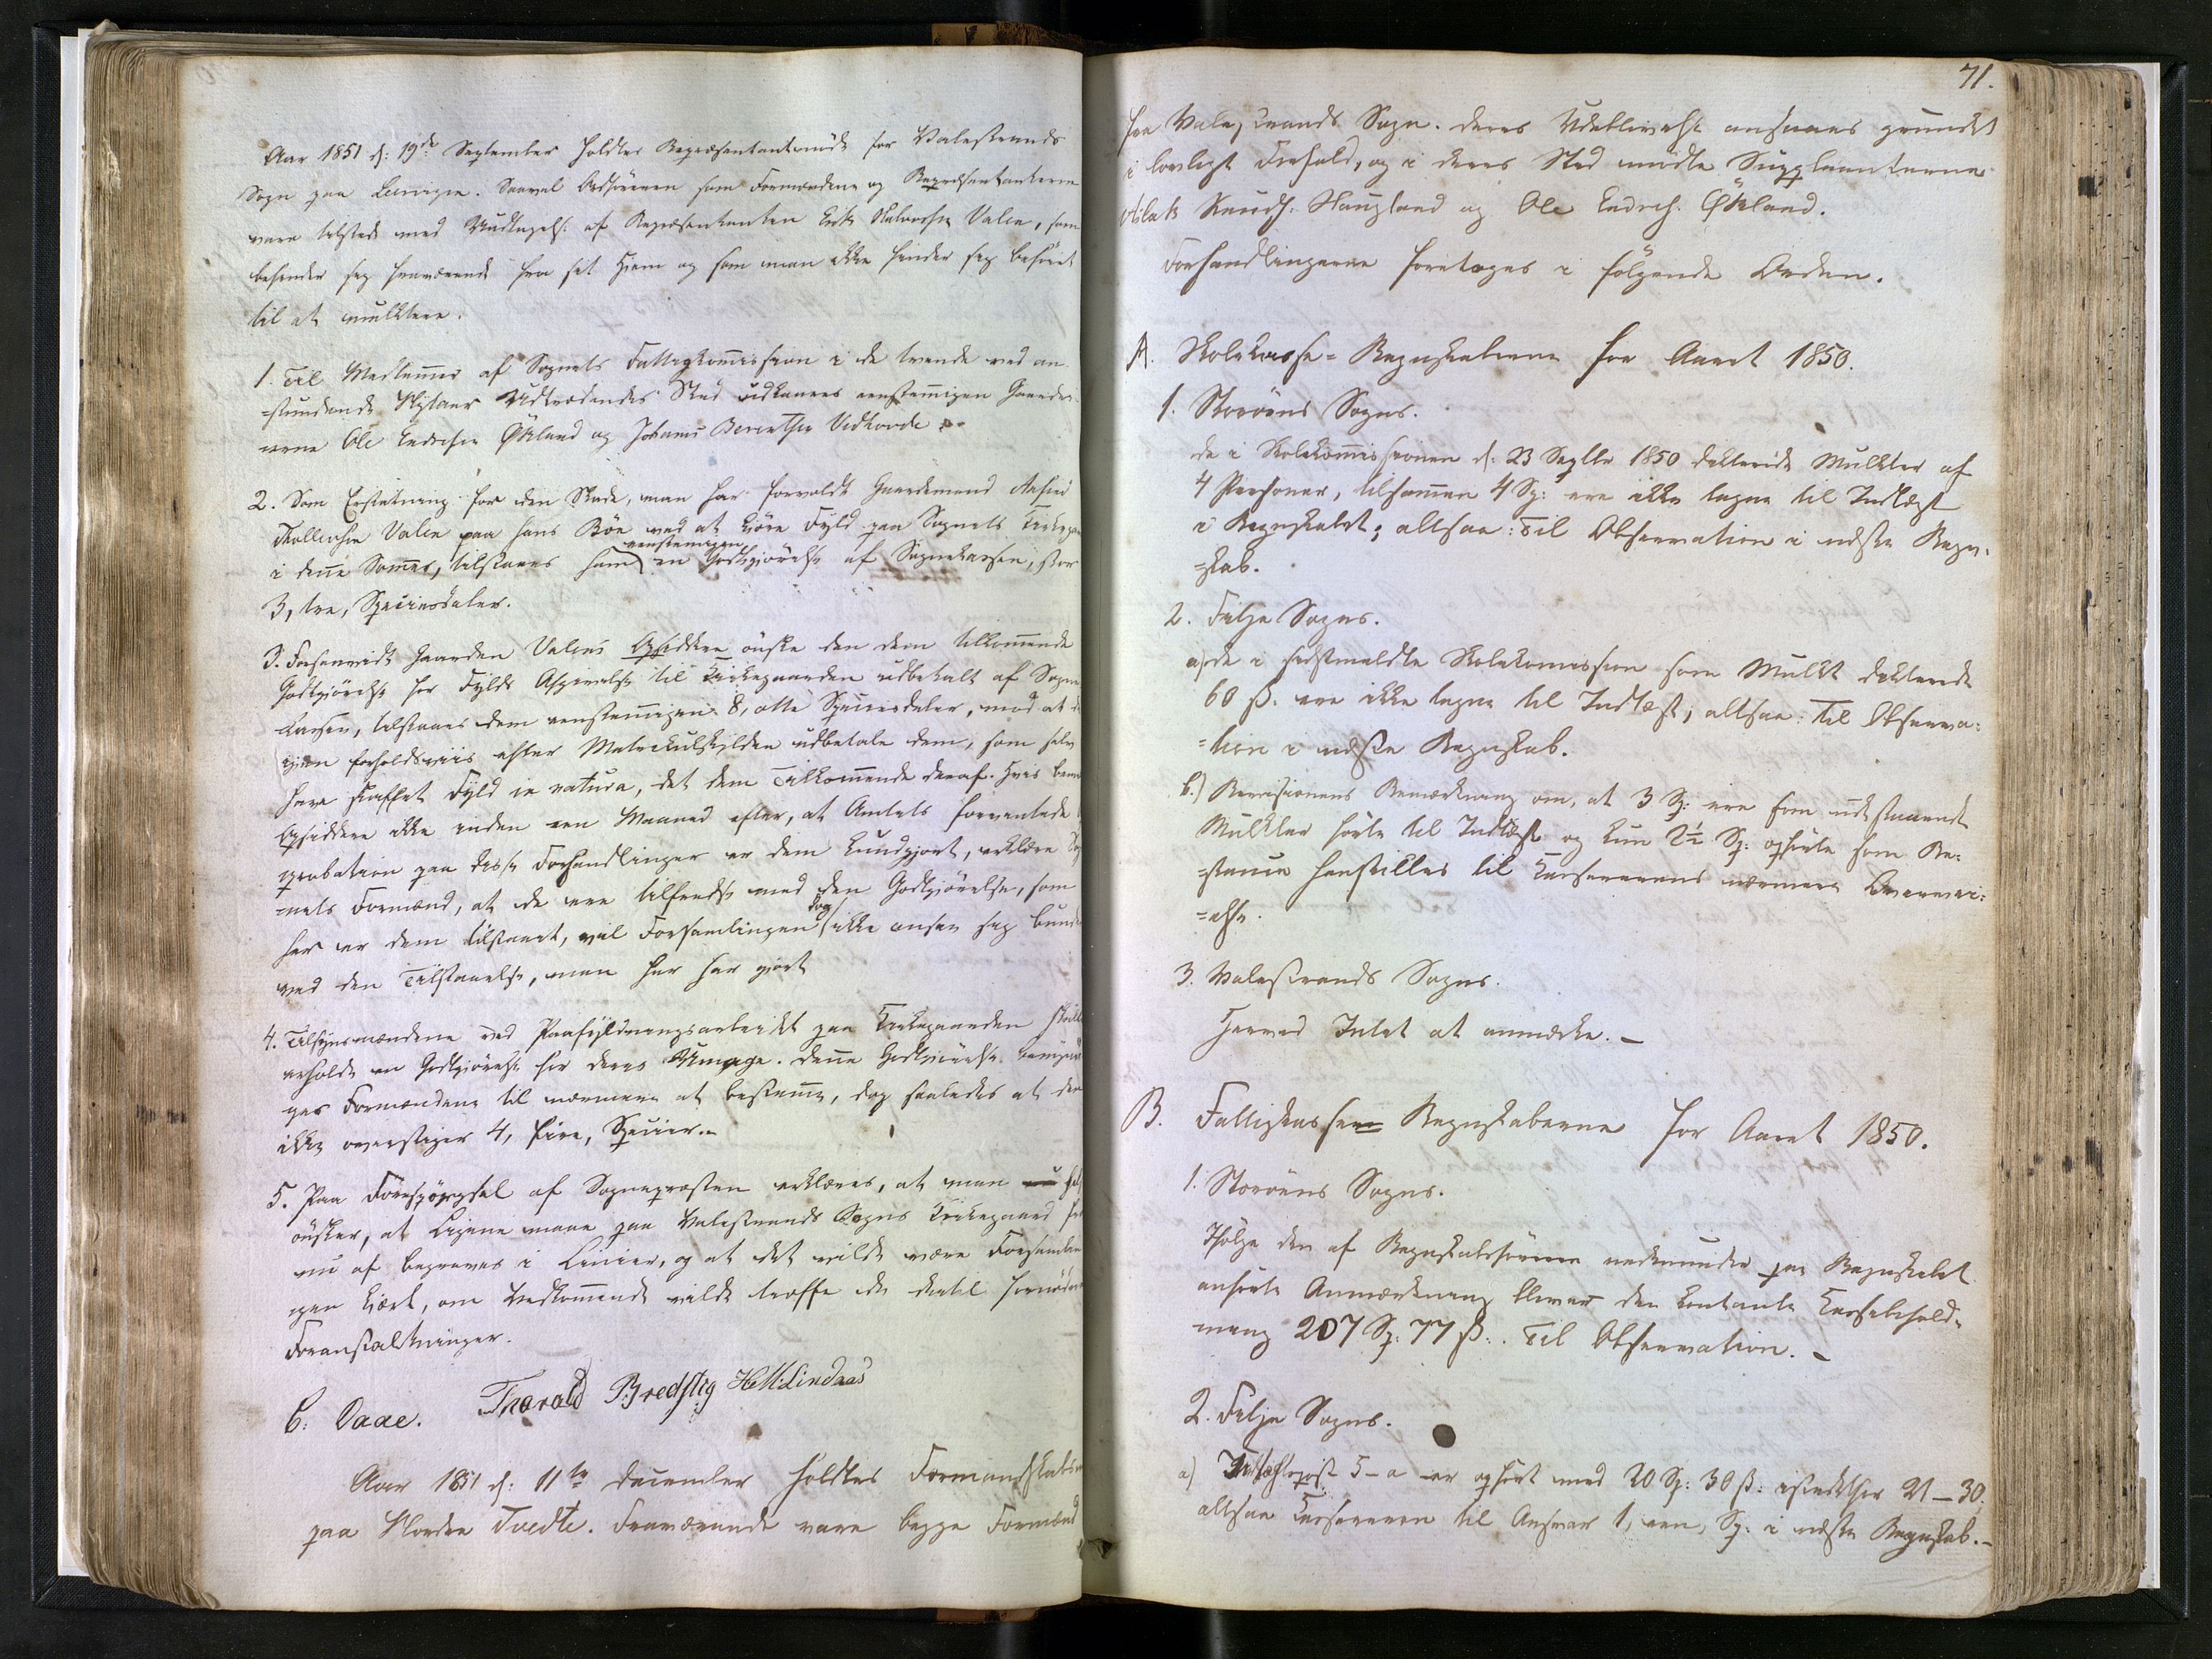 Aar 1851 d: 19de September holdtes Repræsentantmöde for Valestrands
Sogn paa Lannegra. Saavel Ordföreren som Formændene og Repræsentanterne
vare tilstede med Undtagelse af Repræsentanten Erik Halvorsen Valen, som
befinder sig fraværende fra sit Hjem og som man ikke finder sig beföiet
til at mulktere.
1. Til Medlemmer af Sognets Fattigkommission i de tvende ved an-
=stundende Nytaar Udtrædendes Sted udkaares eenstemmigen Gaardbru-
erne Ole Endresen Økland og Johannes Berentsen Vidhovde.
2. Som Erstatning for den Skade, man har forvoldt Gaardmand
Valen paa hans Böe ved at kjöre Fyld paa Sognets Kirkegaa
eenstemmigen
i denne Sommer, tilstaaes ham en Godtgjörelse af Sognekassen, stor
3, tre, Speciesdaler.
3. Forsaavidt Gaarden Valens Opsiddere önske den dem tilkommende
Godtgjörelse for Fylds Afgivelse til Kirkegaarden udbetalt af Sogne
kassen, tilstaaes dem eenstemmigen 8, otte Speciesdaler, mod at de
igjen forholdsviis efter Matrikulskylden udbetale dem, som selv
have skaffet Fyld in natura, det dem Tilkommende deraf. Hvis bem
Opsiddere ikke inden een Maaned efter, at Amtets forventede
probation paa disse Forhandlinger er dem kundgjort, erklære Sog
=nets Formænd, at de ere tilfreds med den Godtgjörelse, som
dog
her er dem tilstaaet, vil Forsamlingen ikke ansee sig bund
ved den Tilstaaelse, man her har gjort
4. Tilsynsmændene ved Paafyldningsarbeidet paa Kirkegaarden skull
erholde en Godtgjörelse for deres Umage. Denne Godtgjörelse bemyn
ges Formændene til nærmere at bestemme, dog saaledes at den
ikke overstiger 4, fire, Specier.
5. Paa Forespørgsel af Sognepræsten erklæres, at man
önsker, at Ligene maae paa Valestrands Sogns Kirkegaard fra
nu af begraves i Linier, og at det vilde være Forsamlin
gen kjært, om Vedkommende vilde træffe de dertil fornödne
Foranstaltninger.
C: Daae. Tharald Bredstig H: M: Lindaas
Aar 1851 d: 11te December holdtes Formandskabsm
paa Nordre Tvedte. Fraværende vare begge Formænd
71.
fra Valestrands Sogn. Deres Udeblivelse ansaaes grundet
i lovligt Forfald, og i deres Sted mödte Suppleanterne
Aslak Knuds. Haugland og Ole Endres. Økland.
Forhandlingerne foretoges i fölgende Orden.
A. Skolekasse=Regnskaberne for Aaret 1850.
1. Storöens Sogns.
de i Skolekommissionen d: 23 Septbr 1850 dikterede Mulkter af
4 Personer, tilsammen 4 Sp: ere ikke tagne til Indtægt
i Regnskabet; altsaa: Til Observation i næste Regn-
=skab.
2. Fitje Sogns.
a) de i sidstmeldte Skolekommission som Mulkt dikterede
60 ß. ere ikke tagne til Indtægt, altsaa: til Observa-
=tion i næste Regnskab.
b.) Revisionens Bemærkning om, at 3 Sp: ere som udestaaende
Mulkter förte til Indtægt og kun 2½ Sp: opförte som Re-
=stance henstilles til Kassererens nærmere Overvei-
=else.
3. Valestrands Sogns.
Herved Intet at anmærke. –
B. Fattigkasse=Regnskaberne for Aaret 1850.
1. Storöens Sogns.
Ifölge den af Regnskabsföreren nedenunder paa Regnskabet
anförte Anmærkning bliver den kontante Kassebehold-
ning 207 Sp: 77 ß: Til Observation. –
2. Fitje Sogns.
a) Indtægtspost 5–a er opfört med 20 Sp: 30 ß: istedetfor 21–30.
altsaa Kassereren til Ansvar 1, een, Sp: i næste Regnskab. –